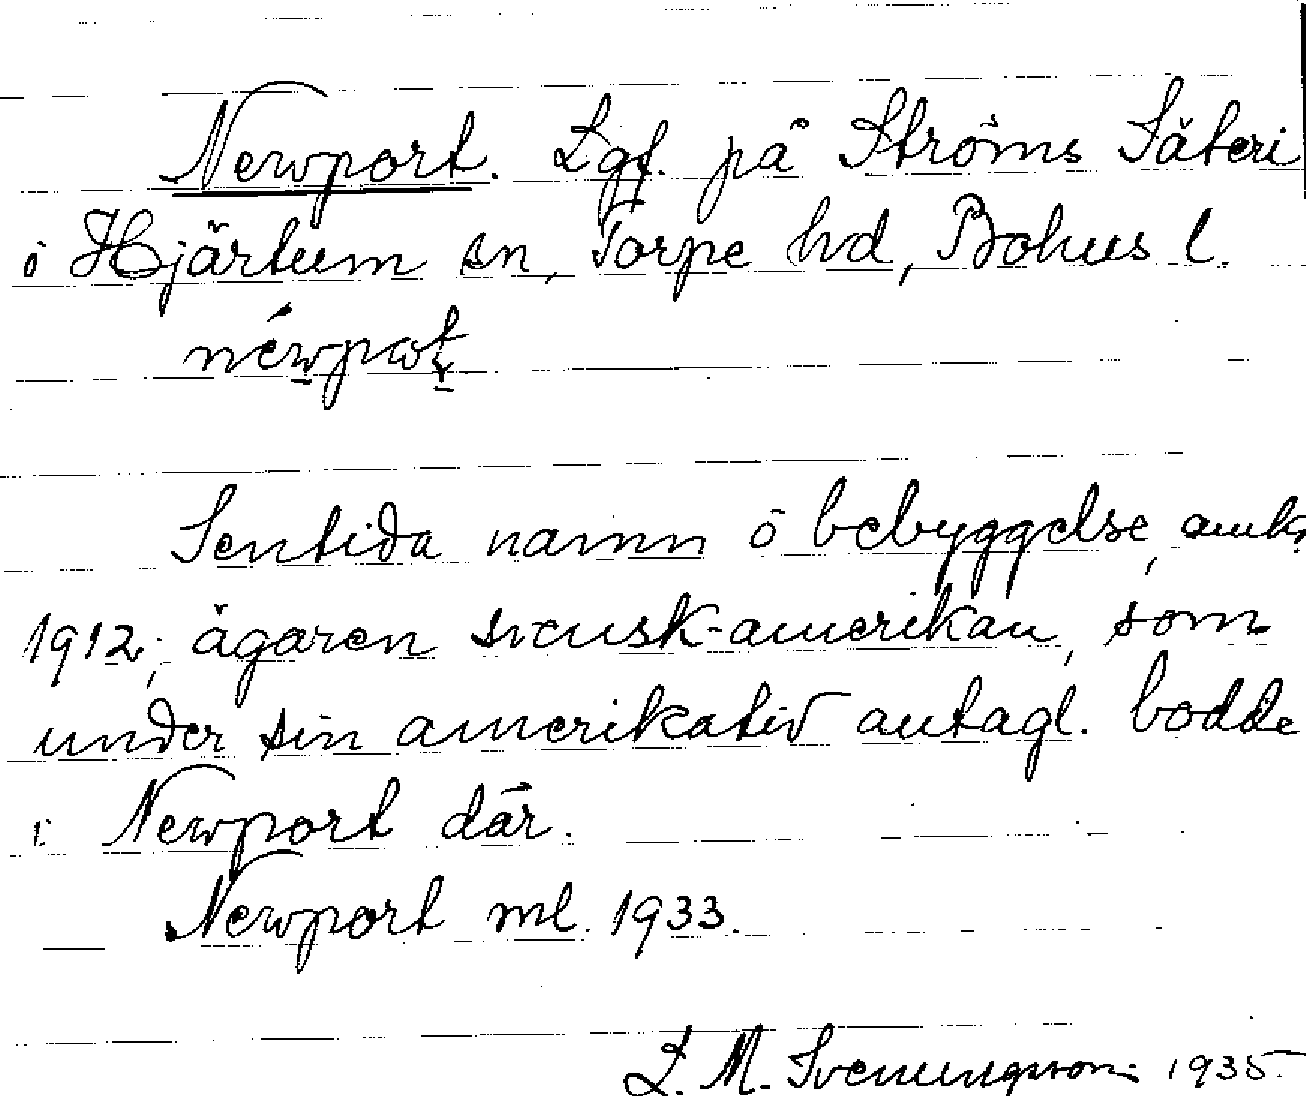 Newport. Lgf. på Ströms Säteri
i Hjärtum sn, Torpe hd, Bohus l.
néwpot
Sentida namn o bebyggelse, omkr
1912; ägaren svensk-amerikan, som
under sin amerikatid antagl. bodde
i Newport där.
Newport ml. 1933.
L. M. Svenungsson 1935.